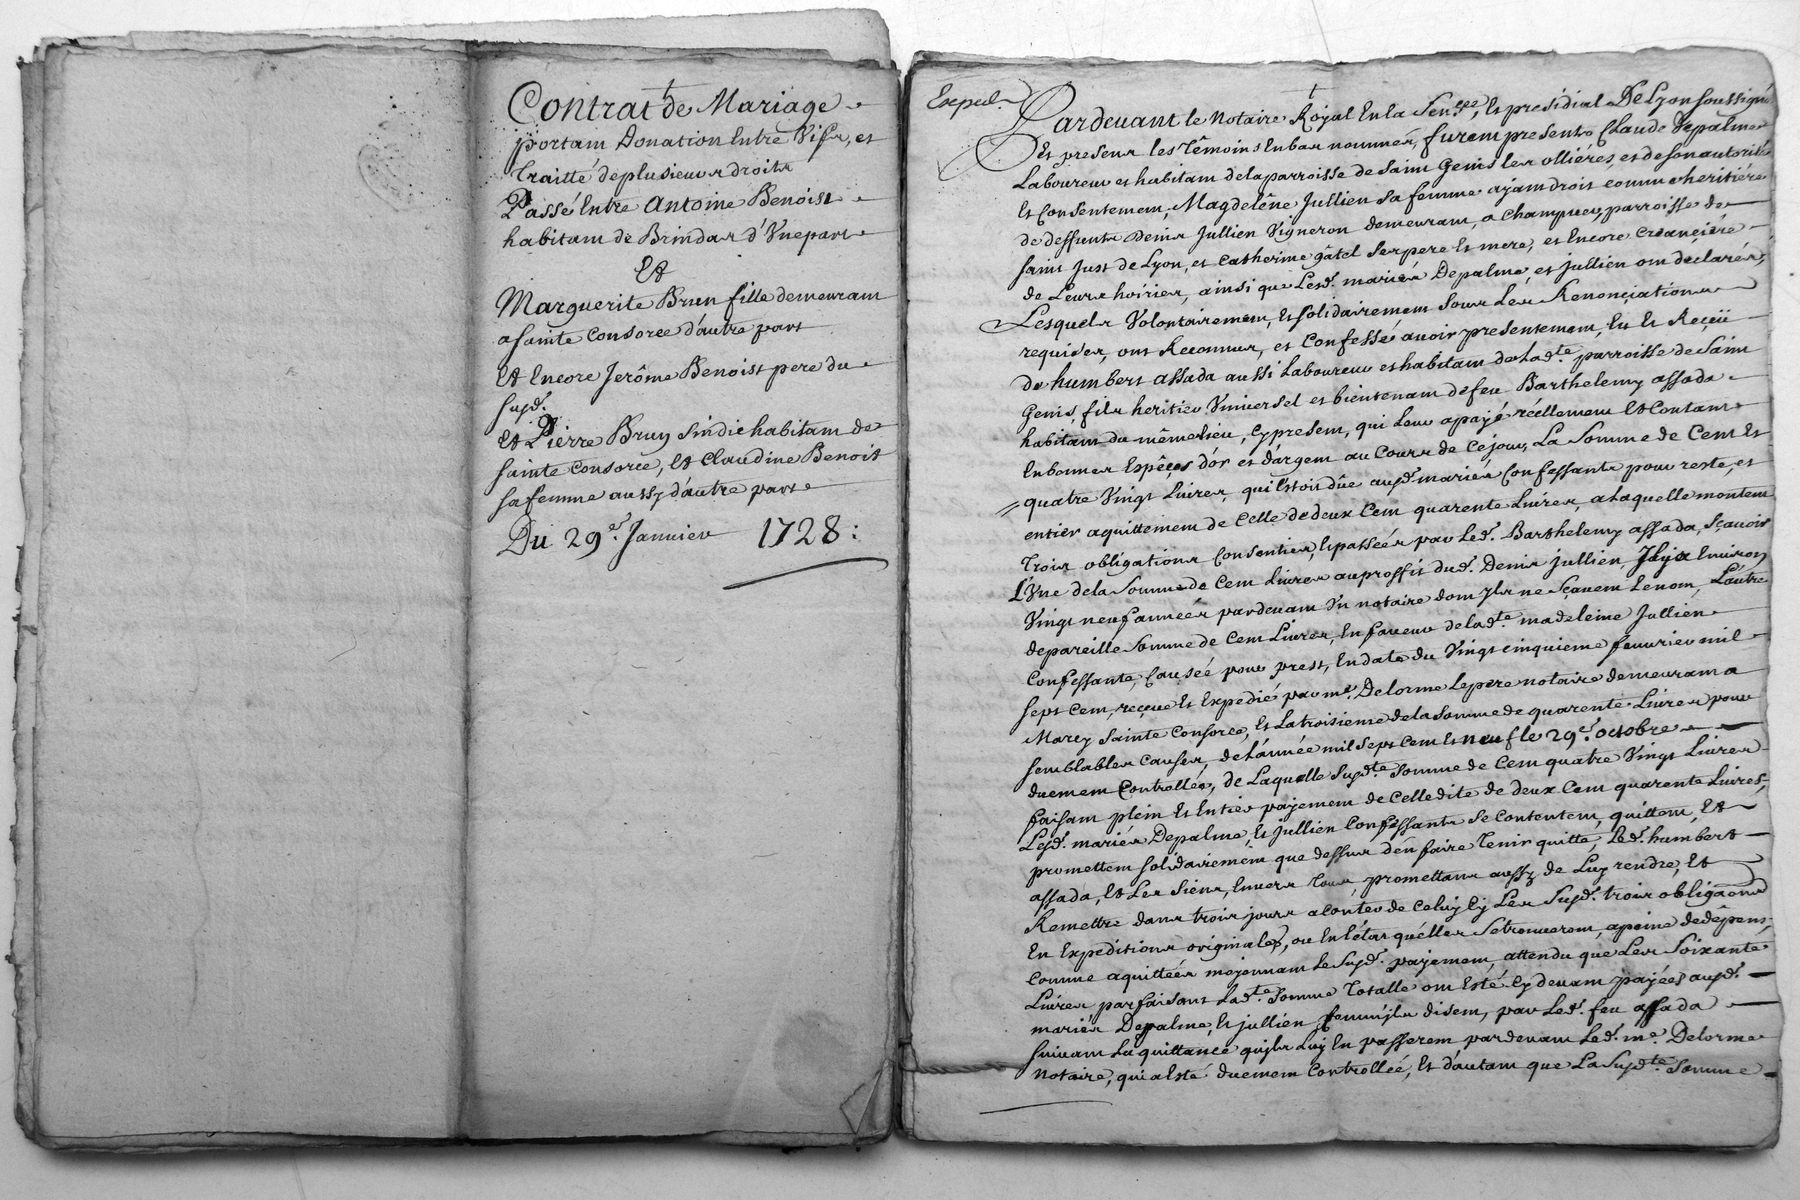 Contrat de Mariage
portant Donation Entre Vifs, et
traitté de plusieurs droits
Passé Entre Antoine Benoist
habitant de Brindas d'Vne part
Et
Marguerite Brun fille demeurant
a sainte Consorce d'autre part
Et Encore Jerôme Benoist pere du
susd.
Et Pierre Brun sindic habitant de
sainte Consorce, Et Claudine Benoit
sa femme aussy d'autre part
Du 29.e Januier 1728:
Exped.
Pardeuant le Notaire Royal En la Sen.ee, Et presidial De Lyon soussigné
Et presens les Témoins En bas nommés, furent presents Claude Depalme
Laboureur et habitant de la parroisse de saint Genis les ollières, et de son autorité
Et Consentement, Magdeleine Jullien sa femme ajant droit comme heritiére
de deffunts Denis Jullien Vigneron demeurant, a Champuer, parroisse de
saint Just de Lyon, et Catherine gâtel ses pere Et mere, et Encore Creanciére
de Leurs hoiries, ainsi que Lesd. mariés Depalme, et Jullien ont declarés,
Lesquels Volontairement, Et solidairement sous Les Renonciations
requises, ont Reconnu, et Confessé auoir presentement, Eu Et Reçeü
de humbert assada aussi Laboureur et habitant de Lad.te parroisse de Saint
Genis, fils heritier Vniuersel et bientenant de feu Barthelemy assada
habitant du même lieu, Cy present, qui Leur a payé réellement Et Contant
En bonnes Espêces d'or et d'argent au Cours de Ce jour, La Somme de Cent Et
quatre Vingt Liures, qu'il Etoit dûe ausd. mariés Confessants pour reste, et
entier aquittement de Celle de deux Cent quarente Liures, a Laquelle montent
Trois obligations Consenties, Et passées par Led. Barthelemy assada, sçauoir
L'Vne de la Somme de Cent Liures au proffit dud. Denis Jullien, Jl y a Enuiron
Vingt neuf années pardeuant Vn notaire dont Jls ne sçauent Le nom, L'autre
de pareille Somme de Cent Liures, En faueur de lad.te madeleine Jullien
Confessante, Causée pour prest, En date du Vingt cinquieme feurier mil
sept Cent, reçue Et Expedié par m.e Delorme Le pere notaire demeurant a
Marcy Sainte Consorce, Et La troisieme de la Somme de quarente Liures pour
semblables Causes, de L'année mil sept Cent Et neuf le 29.e octobre
duement Controllée, de Laquelle Susd.te Somme de Cent quatre Vingt Liures
faisant plein Et Entier payement de Celle dite de deux Cent quarente Liures,
Lesd. mariés Depalme, Et Jullien Confessants Se Contentent, quittent, Et
promettent solidairement que dessus d'en faire Tenir quitte, Led. humbert
assada, Et Les Siens, Enuers Tous, promettans aussy de Luy rendre, Et
Remettre dans trois jours a Conter de Celuy Cy Les Susd. trois obligãons
En Expeditions originales, ou En L'état qu'elles Se trouueront, a peine de dêpens,
Comme aquittées moyennant Le Susd. payement, attendu que Les Soixante
Liures, parfaisant Lad.te Somme Totalle ont Esté Cy deuant payées ausd.
mariés Depalme, Et Jullien, disent, par Led. feu assada
suiuant La quittance qu'jls Luy En passerent pardeuant Led. m.e Delorme
Notaire, qui a Esté duement Controllée, Et d'autant que La Susd.te Somme